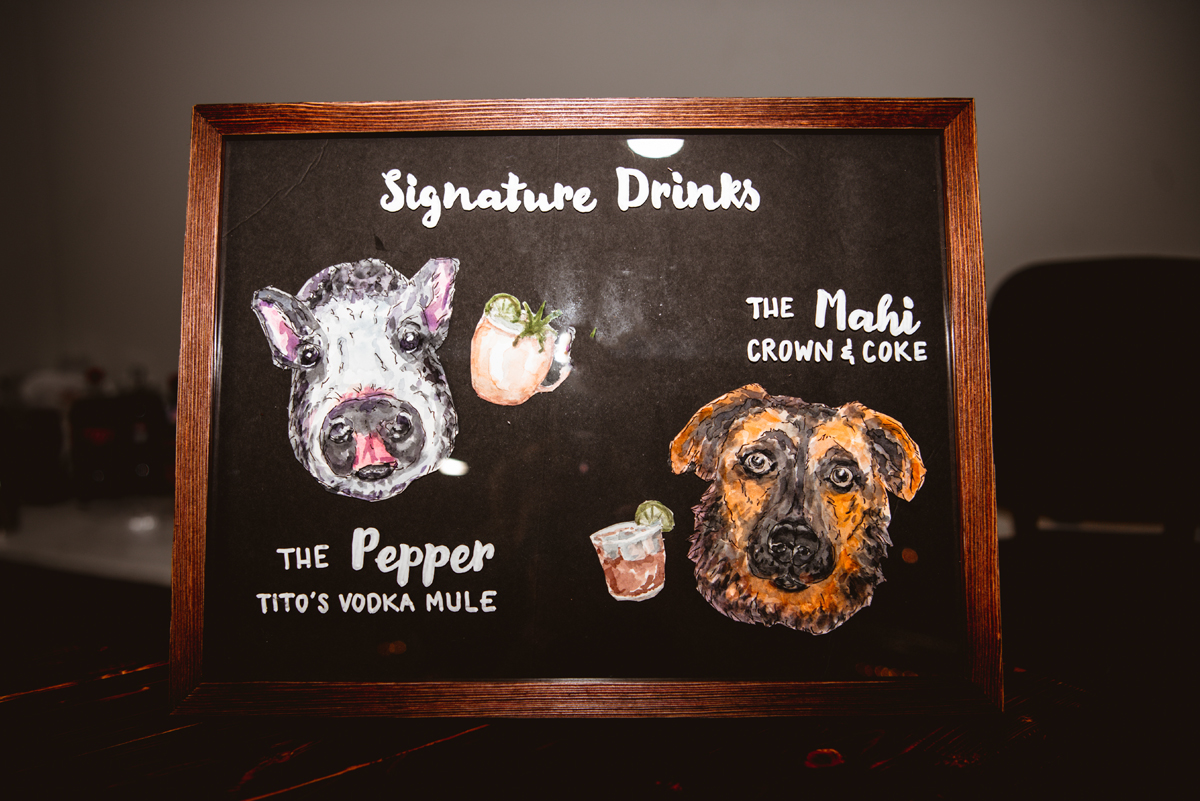 Signature Drinks
THE Mahi
CROWN & COKE
THE Pepper
TITO'S VODKA MULE